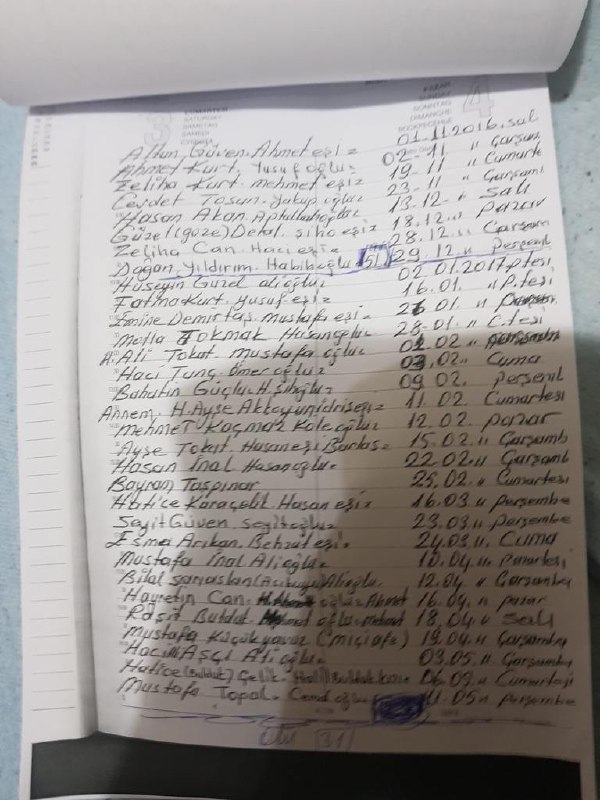 CUMARTESİ
SATURDAY
SAMSTAG
SAMEDI
SUNDAY
SONNTAG
DIMANCHE
4
Altun Güven. Ahmet eşi = 01.11.2016. salı
Ahmet Kurt. Yusuf oğlu = 02-11 " Çarşam
Zeliha Kurt. mehmet eşi = 19-11 " Cumarte
Cevdet Tosun. Yakup oğlu = 23-11 " Çarşamb
Hasan Akan. Aptullahoğlu = 13.12. " Salı
Güzel (göze) Detal. eşi = 18.12. " Pazar
Zeliha Can. Hacı eşi = 28.12. " Çarşam
Doğan Yıldırım. Habiboğlu 51 29.12. " Perşenb
Hüseyin Gürel alioğlu = 02.01.2017 P.tesi
Fatma Kurt. Yusuf eşi = 16.01. " P.tesi
Emine Demirtaş mustafa eşi = 26.01. "
Molla Tokmak Hasanoğlu = 28-01. " C.tesi
H. Ali Tokat mustafa oğlu = 02.02 "
Hacı Tunç. Ömer oğlu = 03.02. " Cuma
Bahatin Güçlü. 09.02. perşenb
Annem. H. Ayşe 11.02. Cumartesi
Mehmet Kaçmaz Kaleoğlu = 12.02. pazar
Ayşe Tokat. Hasan eşi = 15.02. " Çarşamb
Hasan İnal Hasanoğlu = 22.02. " Çarşamb
Bayram Taşpınar 25.02. " Cumartesi
Hatice Karaçelik Hasan eşi = 16.03 " perşembe
Seyit Güven. Seyitoğlu = 23.03 " perşembe
Esma Arıkan. Behzat eşi = 24.03 ". Cuma
Mustafa İnal Alioğlu = 10.04. " Pazartesi
Bilal Alioğlu. 12.04. " Çarşamba
Hayretin Can. oğlu = Ahmet 16.04. " pazar
Raşit Buldat. oğlu = 18.04 " salı
Mustafa Küçükyavuz 19.04 " Çarşamba
Hacım Aşçı Alioğlu = 03.05. " Çarşamba
Hatice Çelik. Halil 06.02. " Cumartesi
Mustafa Topal. oğlu 11-05 " perşembe
31